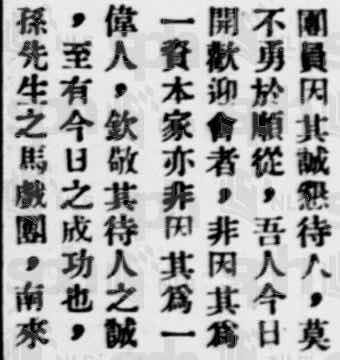 團員因其誠懇待人，莫
不勇於順從，吾人今日
開歡迎會者，非因其爲
一資本家亦非因其爲一
偉人，欽敬其待人之誠
，至有今日之成功也，
孫先生之馬戲團，南來